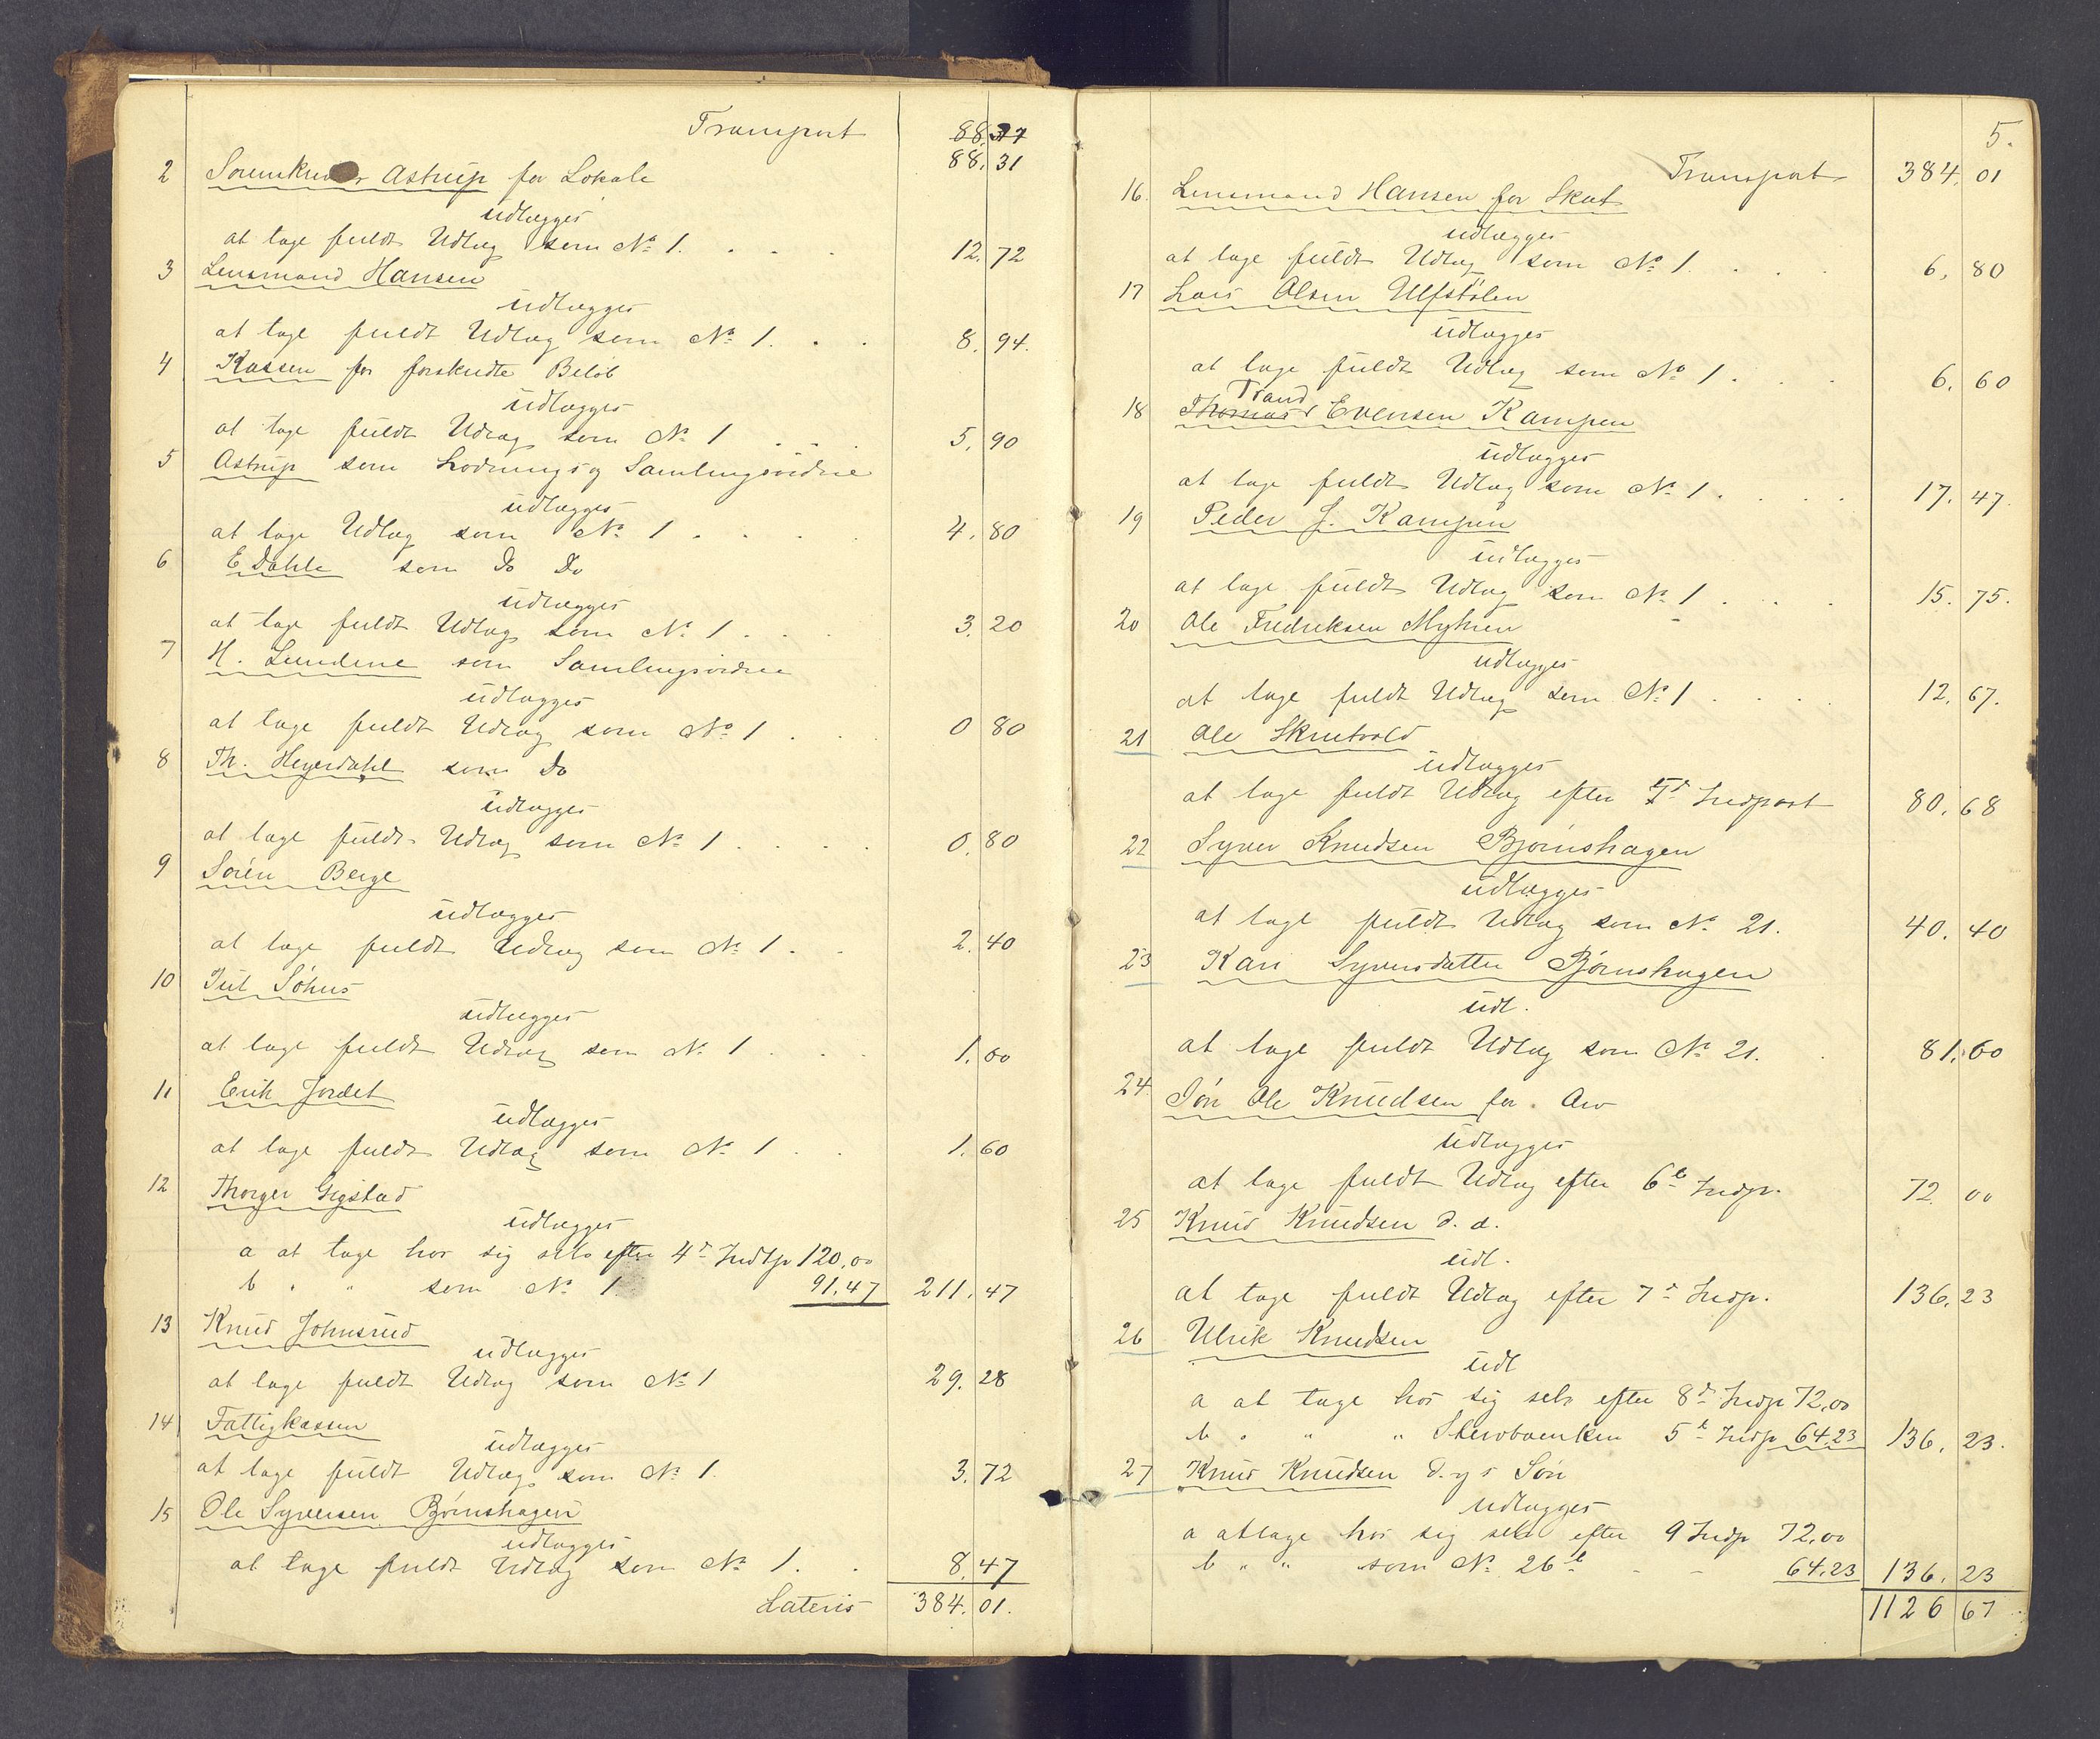 Transport 88.37
88.31
2 Astrup for Lokale
udlægges
at tage fuldt Udlæg som No 1. . . . 12.72
3 Lensmand Hansen
udlægges
at tage fuldt Udlæg som No 1. . . 8.94.
4 Kassen for forskudte Beløb
udlægges
at tage fuldt Udlæg som No 1 . . . 5.90
5 Astrup som Lodnings og Samlingsvidne
udlægges
at tage Udlæg som No 1 . . . . 4.80
6 E Dahle som Do Do
udlægges
at tage fuldt Udlæg som No 1. . . 3.20
7 H. Lundene som Samlingsvidne
udlægges
at tage fuldt Udlæg som No 1 . . . 0 80
8 Th. Heyerdahl som Do
udlægges
at tage fuldt Udlæg som No 1 . . . . 0.80
9 Sørén Berge
udlægges
at tage fuldt Udlæg som No 1. . 2.40
10 Juł Söhus
udlægges
at tage fuldt Udlæg som No 1 . . . 1.60
11 Erik Jordet
udlægges
at tage fuldt Udlæg som No 1 . . 1.60
12 Thorger Gigstad
udlægges
a at tage hos sig selv efter 4d Indtp 120,00
b " " som No 1 91.47 211.47
13 Knud Johnsrud
udlægges
at tage fuldt Udlæg som No 1 29.28
14 Fattigkassen
udlægges
at tage fuldt Udlæg som No 1. 3.72
15 Ole Syversen Bjørnshagen
udlægges
at tage fuldt Udlæg som No 1. . 8.47
Lateris 384.01.
5.
Transport 384.01
16. Lensmand Hansen for Skat
udlægges
at tage fuldt Udlæg som No 1. . . . 6.80
17 Lars Olsen Ulfstølen
udlægges
at tage fuldt Udlæg som No 1. . . 6.60
Trand
18 Thomas Evensen Kampen
udlægges
at tage fuldt Udlæg som No 1. . . . 17.47
19 Peder J. Kampen
udlægges
at tage fuldt Udlæg som No 1 . . . 15.75.
20 Ole Fredriksen Myhren
udlægges
at tage fuldt Udlæg som No 1 . . . . 12.67.
21 Ole Skrutvold
udlægges
at tage fuldt Udlæg efter Indpost 80.68
22 Syver Knudsen Bjørnshagen
udlægges
at tage fuldt Udlæg som No 21. 40.40
23 Kari Syversdatter Bjørnshagen
udl.
at tage fuldt Udlæg som No 21. . 81.60
24. Søn Ole Knudsen for Arv
udlægges
at tage fuldt Udlæg efter 6te Indp. 72 00
25 Knud Knudsen d. æ.
udl.
at tage fuldt Udlæg efter 7d Indp. 136.23
26 Ulrik Knudsen
udl
a at tage hos sig selv efter 8d Indp 72,00
b " " " Skervbænken 5t Indp 64.23 136.23.
27 Knud Knudsen d. y s Søn
udlægges
a at tage hos sig selv efter 9 Indp 72,00
b " " som No 26 b - - 64.23 136.23
1126 67